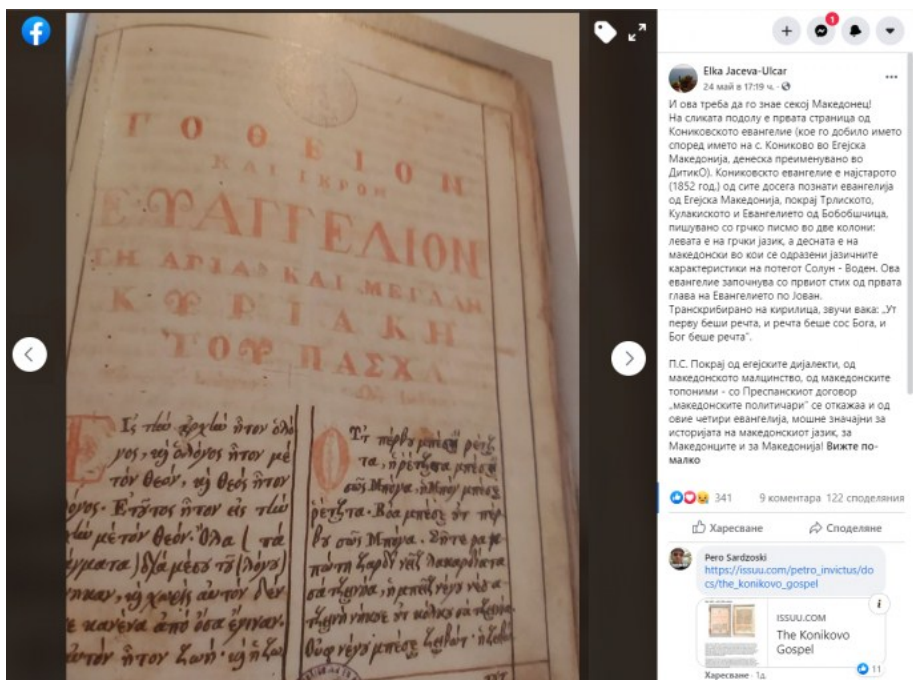 ΓΟΘΕΙΟΝ
ΚΑΙ ΙΕΡΟΝ
ΕΥΑΓΓΕΛΙΟΝ
ΤΗ ΑΓΙΑ ΚΑΙ ΜΕΓΑΛΗ
ΚΥΡΙΑΚΗ
ΤΟΥ ΠΑΣΧΑ
Εἰς τὴν ἀρχὴν ἦτον ὁ λό
γος, καὶ ὁ λόγος ἦτον μὲ
τὸν Θεὸν, καὶ Θεὸς ἦτον
λόγος. Ἐτοῦτος ἦτον εἰς τὴν
μὲ τὸν Θεόν. Ὅλα (τὰ
διὰ μέσου τοῦ (λόγου)
καὶ χωρὶς αὐτὸν δὲν
κανένα ἀπὸ ὅσα ἔγιναν.
αὐτὸν ἦτον ζωὴ. καὶ ἡ ζω
Ὀτ πέρβυ μπέση ρέτζ
τα, ἠ ρέτζτα μπέση
σῶς Μπόγα, ἠ Μπὸγ μπέση
ρέτζτα.
1
Elka Jaceva-Ulcar
24 май в 17:19 ч. ·
И ова треба да го знае секој Македонец!
На сликата подолу е првата страница од
Кониковското евангелие (кое го добило името
според името на с. Кониково во Егејска
Македонија, денеска преименувано во
ДитикО). Кониковскто евангелие е најстарото
(1852 год.) од сите досега познати евангелија
од Егејска Македонија, покрај Трлиското,
Кулакиското и Евангелието од Бобобшчица,
пишувано со грчко писмо во две колони:
левата е на грчки јазик, а десната е на
македонски во кои се одразени јазичните
карактеристики на потегот Солун - Воден. Ова
евангелие започнува со првиот стих од првата
глава на Евангелието по Јован.
Транскрибирано на кирилица, звучи вака: „Ут
перву беши речта, и речта беше сос Бога, и
Бог беше речта“.
П.С. Покрај од егејските дијалекти, од
македонското малцинство, од македонските
топоними - со Преспанскиот договор
„македонските политичари“ се откажаа и од
овие четири евангелија, мошне значајни за
историјата на македонскиот јазик, за
Македонците и за Македонија! Вижте по-
малко
341 9 коментара 122 споделяния
Харесване Споделяне
Pero Sardzoski
https://issuu.com/petro_invictus/do
cs/the_konikovo_gospel
ISSUU.COM
The Konikovo
Gospel
11
Харесване · 1д.